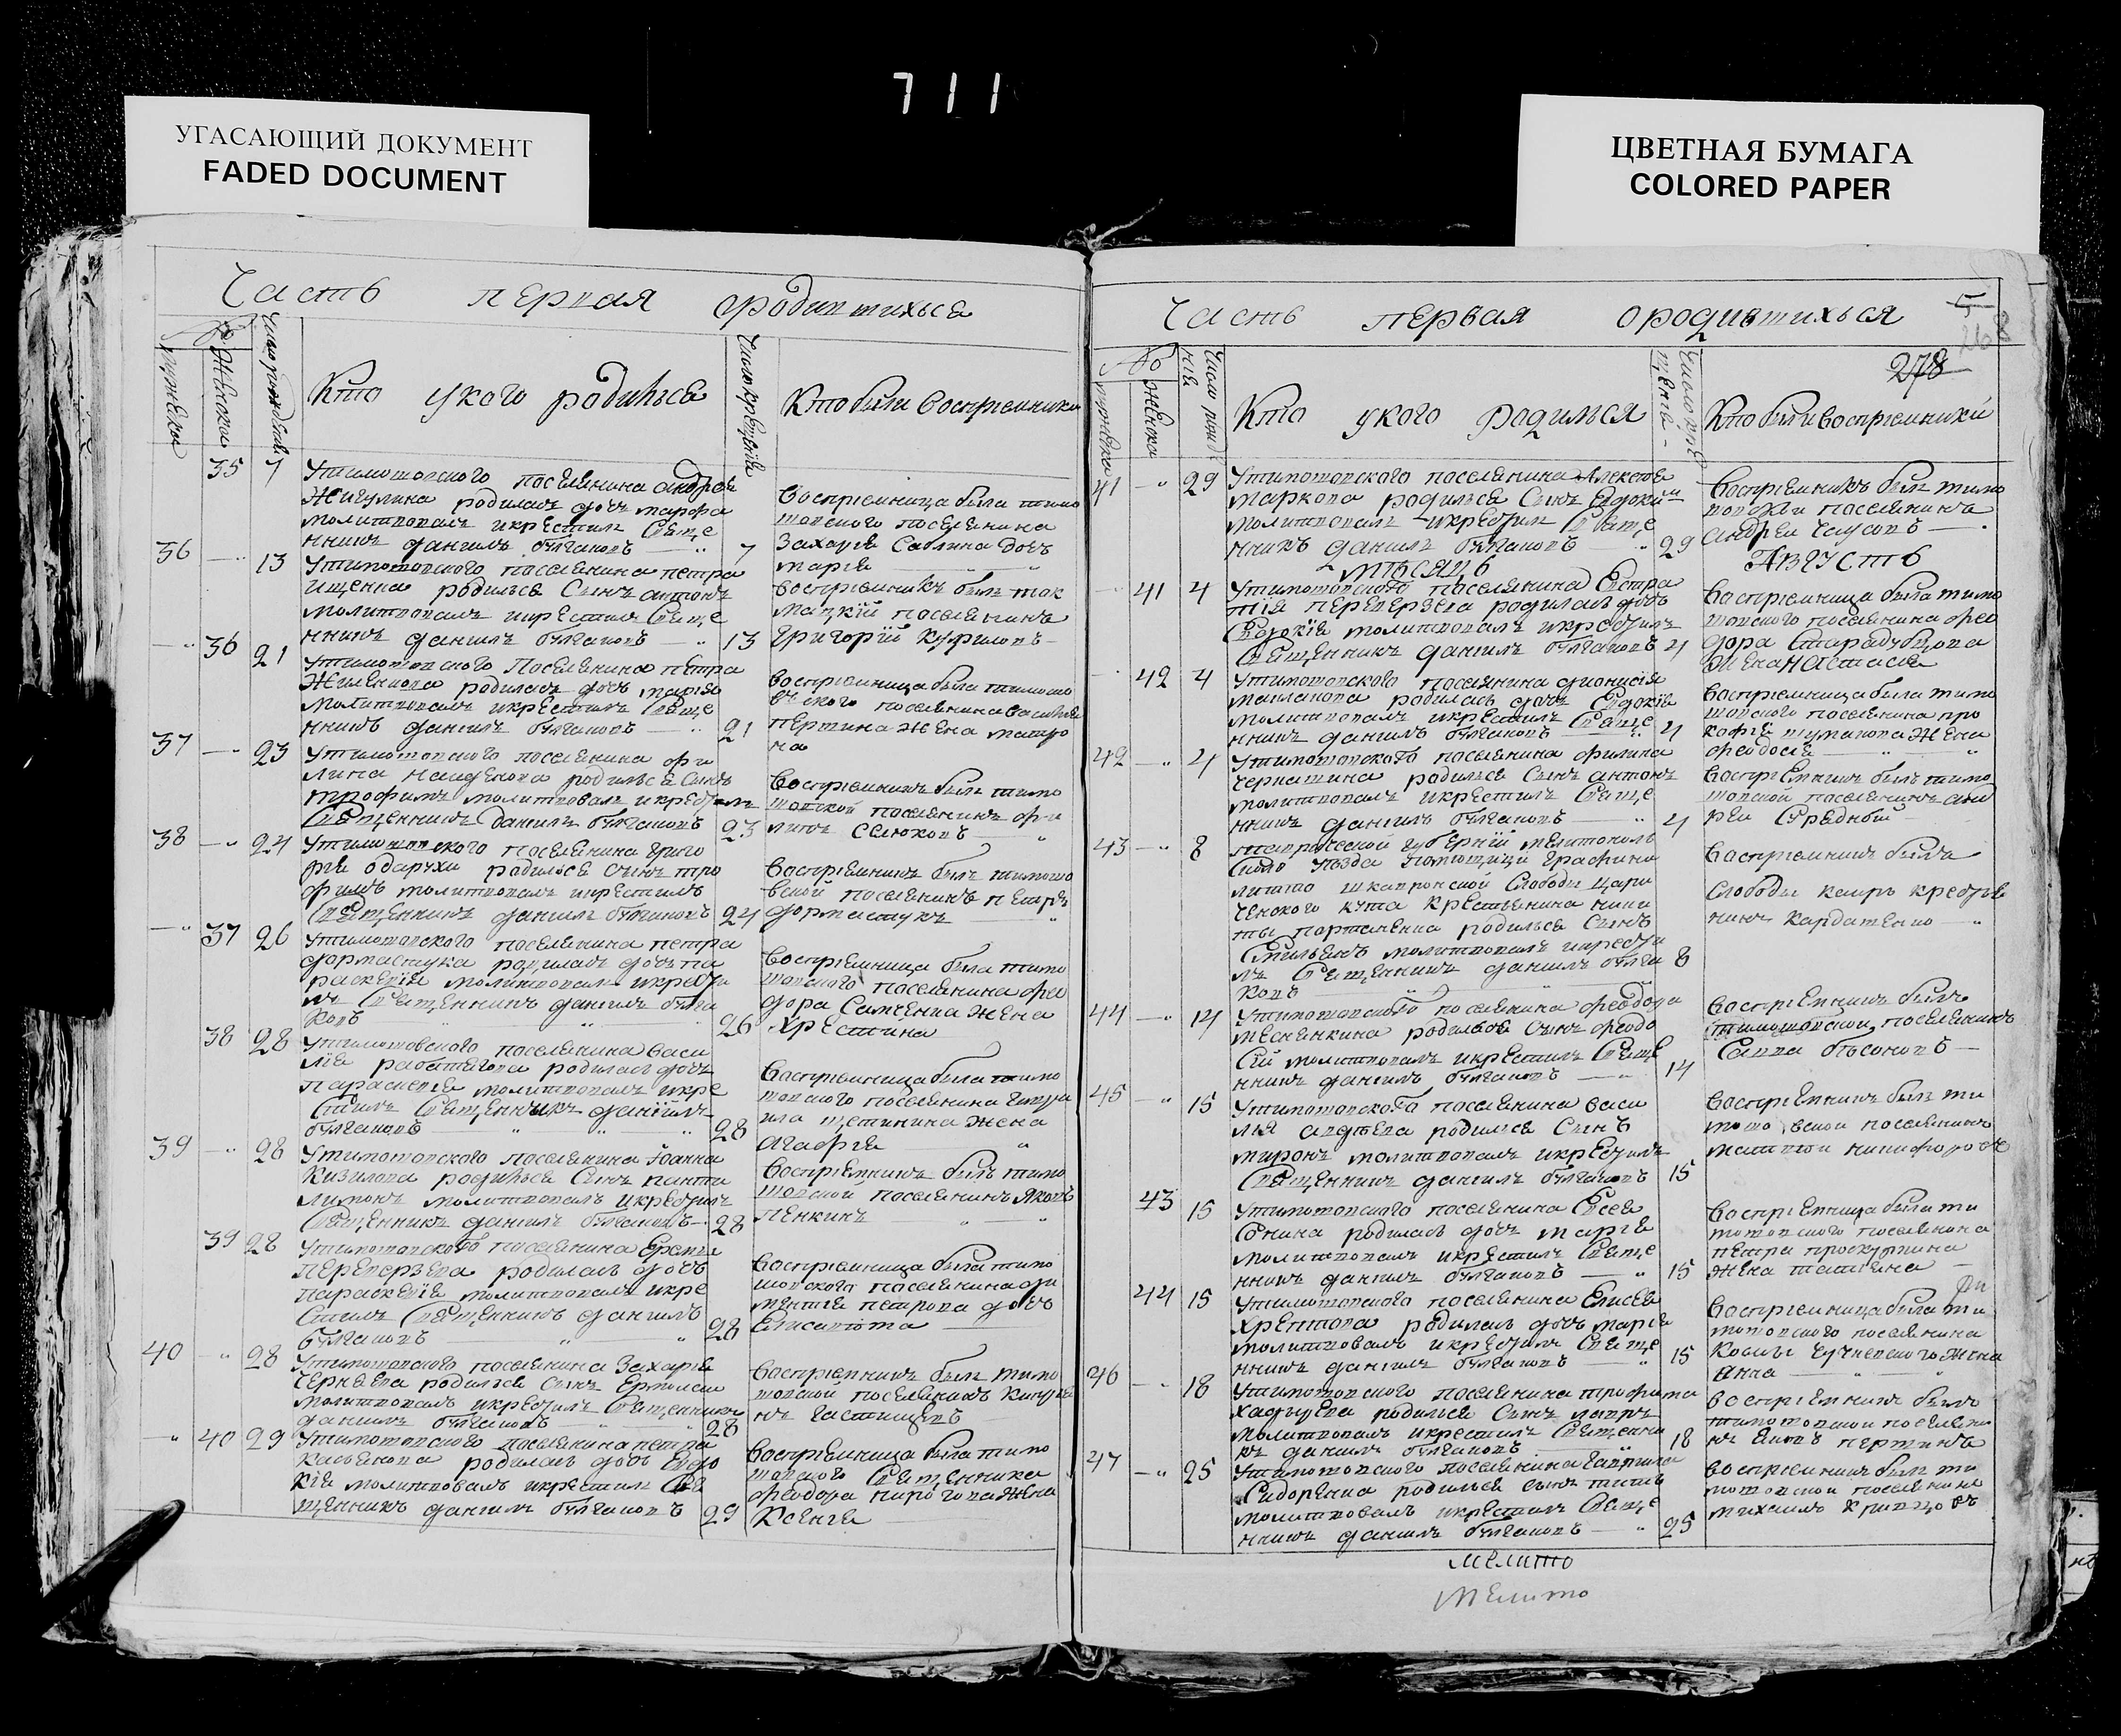 711
УГАСАЮЩИЙ ДОКУМЕНТ
FADED DOCUMENT
ЦВЕТНАЯ БУМАГА
COLORED PAPER
Часть первая ородившихься
№
мужеска
Женска
Число рождения
Кто укого родильса
Число крещенія
Кто были воспріемники
35 7 Утимошовского поселянина андрея
Жигулина родилась дочь марфа
молитвовалъ икрестилъ Свяще
нникъ даніилъ булгаковъ 7
Воспріемница была тимо
шовского поселянина
Захарія Саблина дочь
марія
36 13 Утимошовского поселянина петра
ищенка родилься Сынъ антонъ
молитвовалъ икрестилъ Свяще
нникъ даніилъ булгаковъ 13
воспріемникъ былъ
поселянинъ
григорій
36 21 Утимошовского Поселянина петра
родилась дочь марія
молитвовалъ икрестилъ Свяще
нникъ даніилъ булгаковъ 21
воспріемница была тимошо
вского поселянина василія
пертина Жена матро
на
37 23 Утимошовского поселянина фи
липа найденова родилься Сынъ
трофимъ молитвовалъ икрестилъ
Священникъ Даніилъ булгаковъ 23
Воспріемникъ былъ тимо
шовской поселянинъ фи
липъ Севюковъ
38 24 Утимошовского поселянина григо
рія одарухи родилься Сынъ тро
фимъ молитвовалъ икрестилъ
Священникъ даніилъ булгаковъ 24
Воспріемникъ былъ тимошо
вской поселянинъ петръ
дормастукъ
37 26 Утимошовского поселянина петра
дормастука родилась дочь па
раскевія молитвовалъ икрести
лъ Священникъ даніилъ булга
ковъ 26
Воспріемница была тимо
шовского поселянина фео
дора Савченка Жена
Христина
38 28 Утимошовского поселянина Васи
лія работягова родилась дочь
параскевія молитвовалъ икре
стилъ Священникъ даніилъ
булгаковъ 28
Воспріемница была тимо
шовского поселянина
щетинина Жена
агафія
39 28 Утимошовского поселянина іоанна
Кизилова родильса Сынъ панте
лимонъ молитвовалъ икрестилъ
Священникъ даніилъ булгаковъ 28
Воспріемникъ былъ тимо
шовской поселянинъ яковъ
пенкинъ
39 28 Утимошовского поселянина Еремія
переверзева родилась дочь
параскевія молитвовалъ икре
стилъ Священникъ даніилъ
булгаковъ 28
Воспріемница была тимо
шовского поселянина
петрова дочь
Елисавета
40 28 Утимошовского поселянина Захарія
Черняева родилься Сынъ Ермолай
молитвовалъ икрестилъ Священникъ
даніилъ булгаковъ 28
Воспріемникъ былъ тимо
шовской поселянинъ Кипрія
нъ Частищевъ
40 29 Утимошовского поселянина петра
Касьянова родилась дочь Евдо
кія молитвовалъ икрестилъ Свя
щенникъ даніилъ булгаковъ 29
Воспріемница была тимо
шовского Священника
феодора пирогова Жена
Ксенія
Часть первая ородившихься
5
268
278
№
мужеска
Женска
Кто укого родилься
Кто были воспріемники
41 29 Утимошовского поселянина Алексея
маркова родилься Сынъ Евдокимъ
молитвовалъ икрестилъ Свяще
нникъ даніилъ булгаковъ 29
Воспріемникъ былъ тимо
шовской поселянинъ
андрей Чаусовъ
мѣсяцъ Августъ
41 4 Утимошовского поселянина Евстра
тія переверзева родилась дочь
Евдокія молитвовалъ икрестилъ
Священникъ даніилъ булгаковъ 4
Воспріемница была тимо
шовского поселянина фео
дора Стародубцова
Жена настасія
42 4 Утимошовского поселянина діонисія
маплакова родилась дочь Евдокія
молитвовалъ икрестилъ Свяще
нникъ даніилъ булгаковъ 4
Воспріемница была тимо
шовского поселянина про
кофія шумакова Жена
феодосія
42 4 Утимошовского поселянина филипа
Чернашина родилься Сынъ антонъ
молитвовалъ икрестилъ Свяще
нникъ даніилъ булгаковъ 4
Воспріемникъ былъ тимо
шовской поселянинъ анд
рей Средной
43 8 таврической губерній мелитополь
Скаго уезда помещицы графини
литто Слободы цари
ченского кута крестьянина ники
ты портянка родилься Сынъ
Емильянъ молитвовалъ икрести
лъ Священникъ даніилъ булга 8
ковъ
Воспріемникъ былъ
Слободы каиръ крестья
нинъ Кардашенко
44 14 Утимошовского поселянина феодора
меснянкина родилься Сынъ феодо
сій молитвовалъ икрестилъ Свяще
нникъ даніилъ булгаковъ 14
Воспріемникъ былъ
тимошовской поселянинъ
Савва бѣсоновъ
45 15 Утимошовского поселянина васи
лія авдѣева родилься Сынъ
миронъ молитвовалъ икрестилъ
Священникъ даніилъ булгаковъ 15
Воспріемникъ былъ ти
мошовской поселянинъ
матвей никифоровъ
43 15 Утимошовского поселянина Евсея
Сонина родилась дочь марія
молитвовалъ икрестилъ Свяще
нникъ даніилъ булгаковъ 15
Воспріемница была ти
мошовского поселянина
петра проскурнина
Жена татіяна
44 15 Утимошовского поселянина Елисея
Хрептова родилась дочь марія
молитвовалъ икрестилъ Свяще
нникъ даніилъ булгаковъ 15
Воспріемница была ти
мошовского поселянина
Косьмы Бучневского Жена
Анна
46 18 Утимошовского поселянина трофима
родилься Сынъ лавръ
молитвовалъ икрестилъ Священни
къ даніилъ булгаковъ 18
Воспріемникъ былъ
тимошовской поселяни
нъ яковъ пертинъ
47 25 Утимошовского поселянина гавріила
Сидоренка родилься сынъ титъ
молитвовалъ икрестилъ Свяще
нникъ даніилъ булгаковъ 25
Воспріемникъ былъ ти
мошовской поселянинъ
михаилъ Кривцовъ
Мелито
Мелито